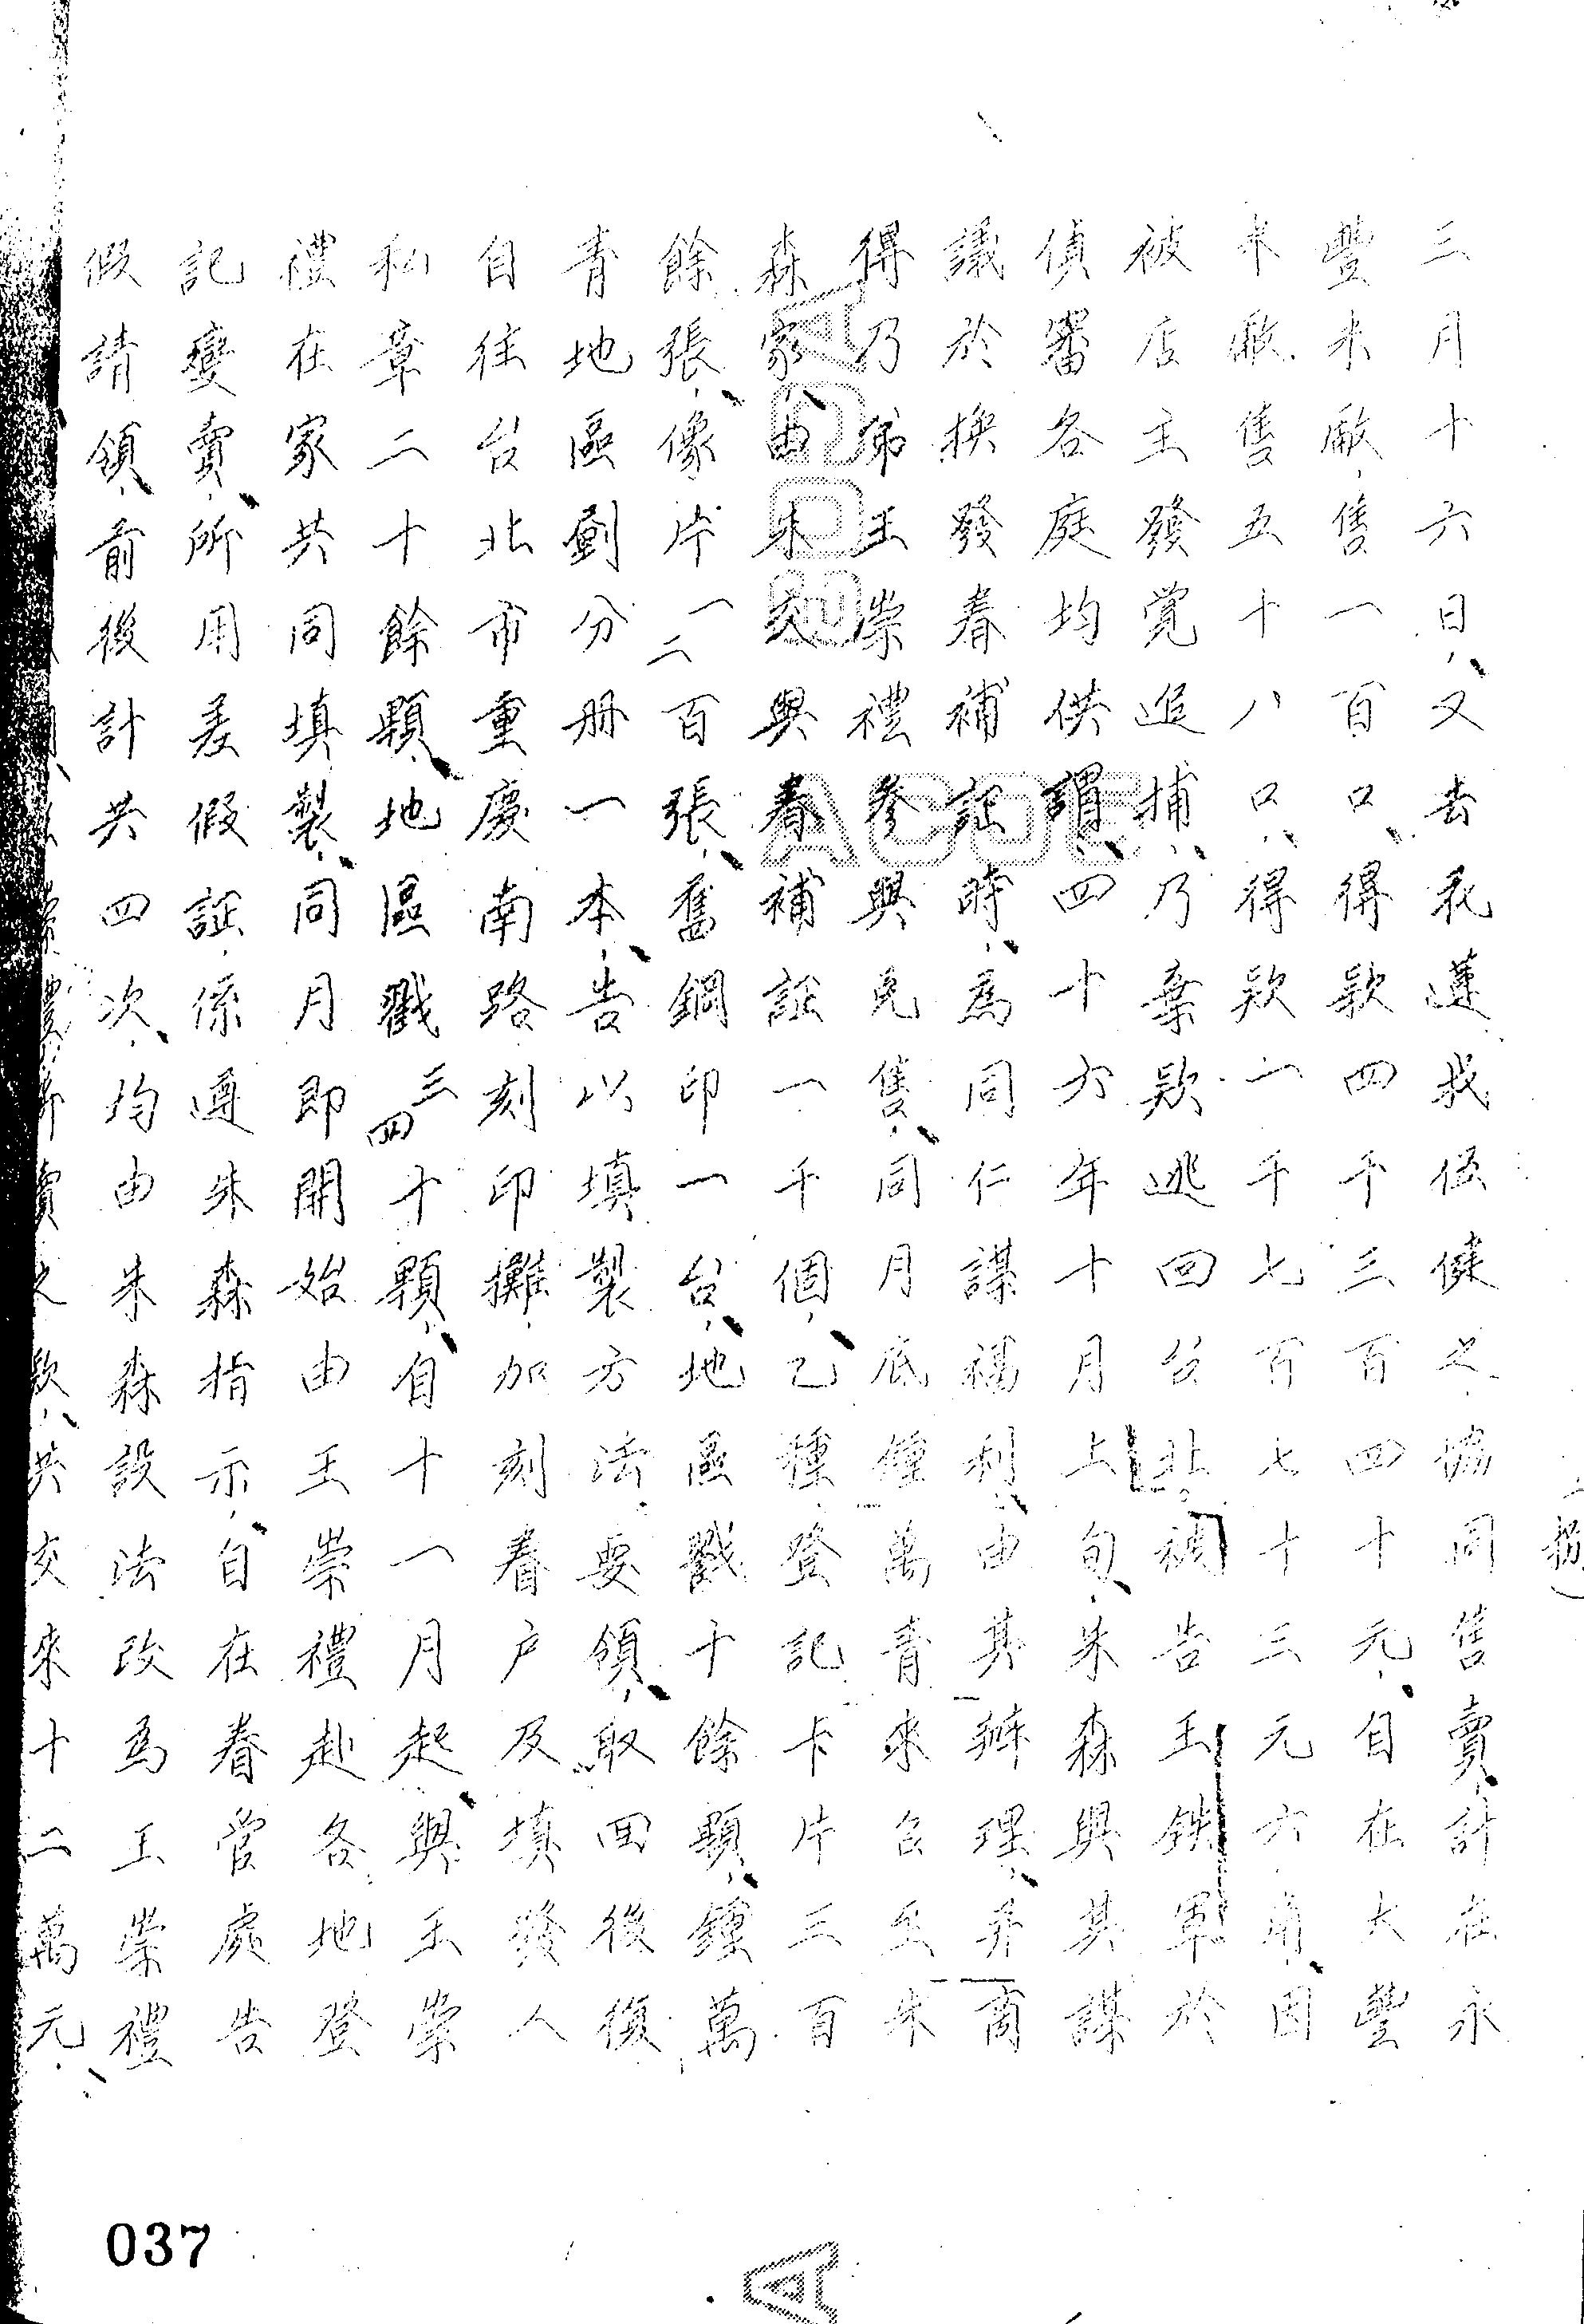 三月十六日、又去花蓮我伍健之協同售賣、計在永
豐米廠、售一百口、得款四千三百四十元、自在大豐
米廠售五十八口、得款一千七百七十三元六角、因
被店主發覺追捕、乃棄款逃回台北。被告王鉄軍於
偵審各庭均供謂、四十六年十月上旬、朱森與其謀
議於換發眷補証時、為同仁謀福利、由其辦理、并商
得乃弟王崇禮參與兜售、同月底鍾萬青來台至朱
森家、由朱交與眷補証一千個、乙種登記卡片三百
餘張、像片一二百張、舊鋼印一台、地區戳十餘顆、鍾萬
青地區劃分册一本、告以填製方法、要領、取回後復
自往台北市重慶南路刻印攤、加刻眷户及填發人
私章二十餘顆、地區戳三四十顆、自十一月起、與王崇
禮在家共同填製、同月即開始由王崇禮赴各地登
記變賣、所用差假証、係遵朱森指示、自在眷管處告
假請領、前後計共四次、均由朱森設法改為王崇禮
禮 賣之款、共交來十二萬元、
037